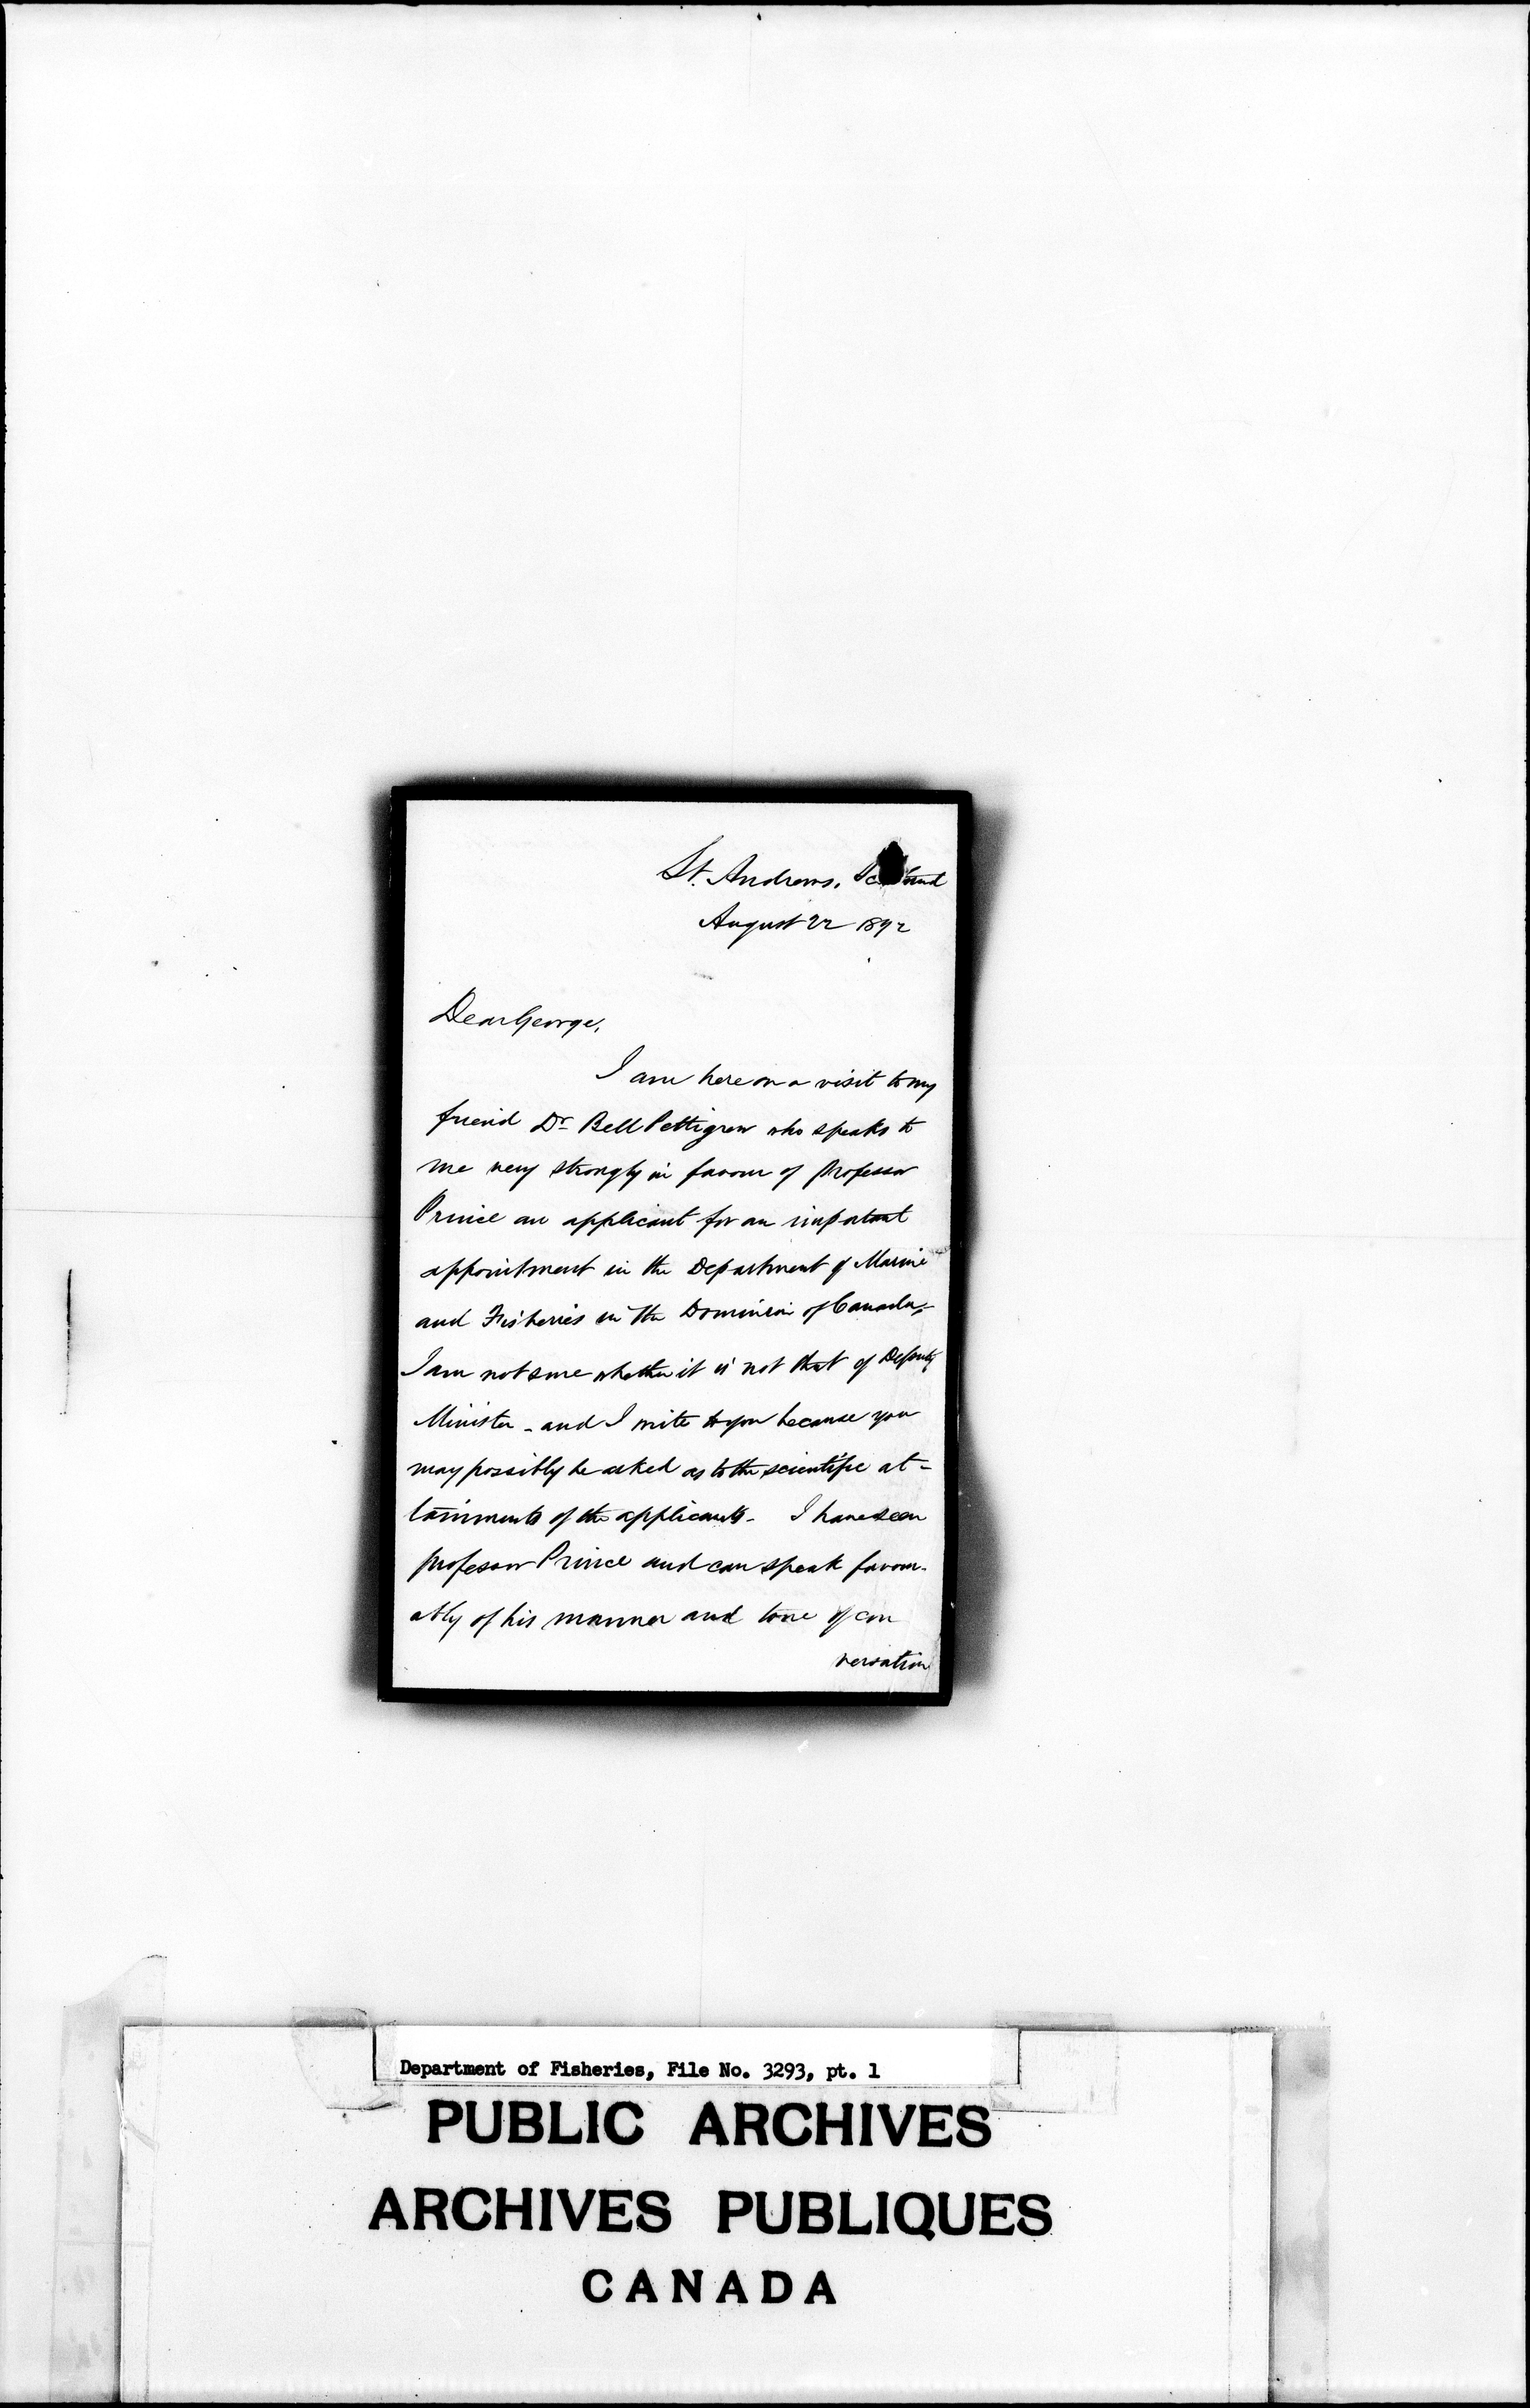 St. Andrews. Scotland
August 22 1892
Dear George,
I am here on a visit to my
friend Dr Bell Pettigrew who speaks to
me very strongly in favour of Professor
Prince an applicant for an important
appointment in the Department of Marine
and Fisheries in the Dominion of Canada,-
I am not sure whether it is not that of Deputy
Minister - and I write to you because you
may possibly be asked as to the scientific at-
tainments of the applicants - I have seen
professor Prince and can speak favour-
ably of his manner and tone of con
versation
Department of Fisheries, File No. 3293, pt. 1
PUBLIC ARCHIVES
ARCHIVES PUBLIQUES
CANADA